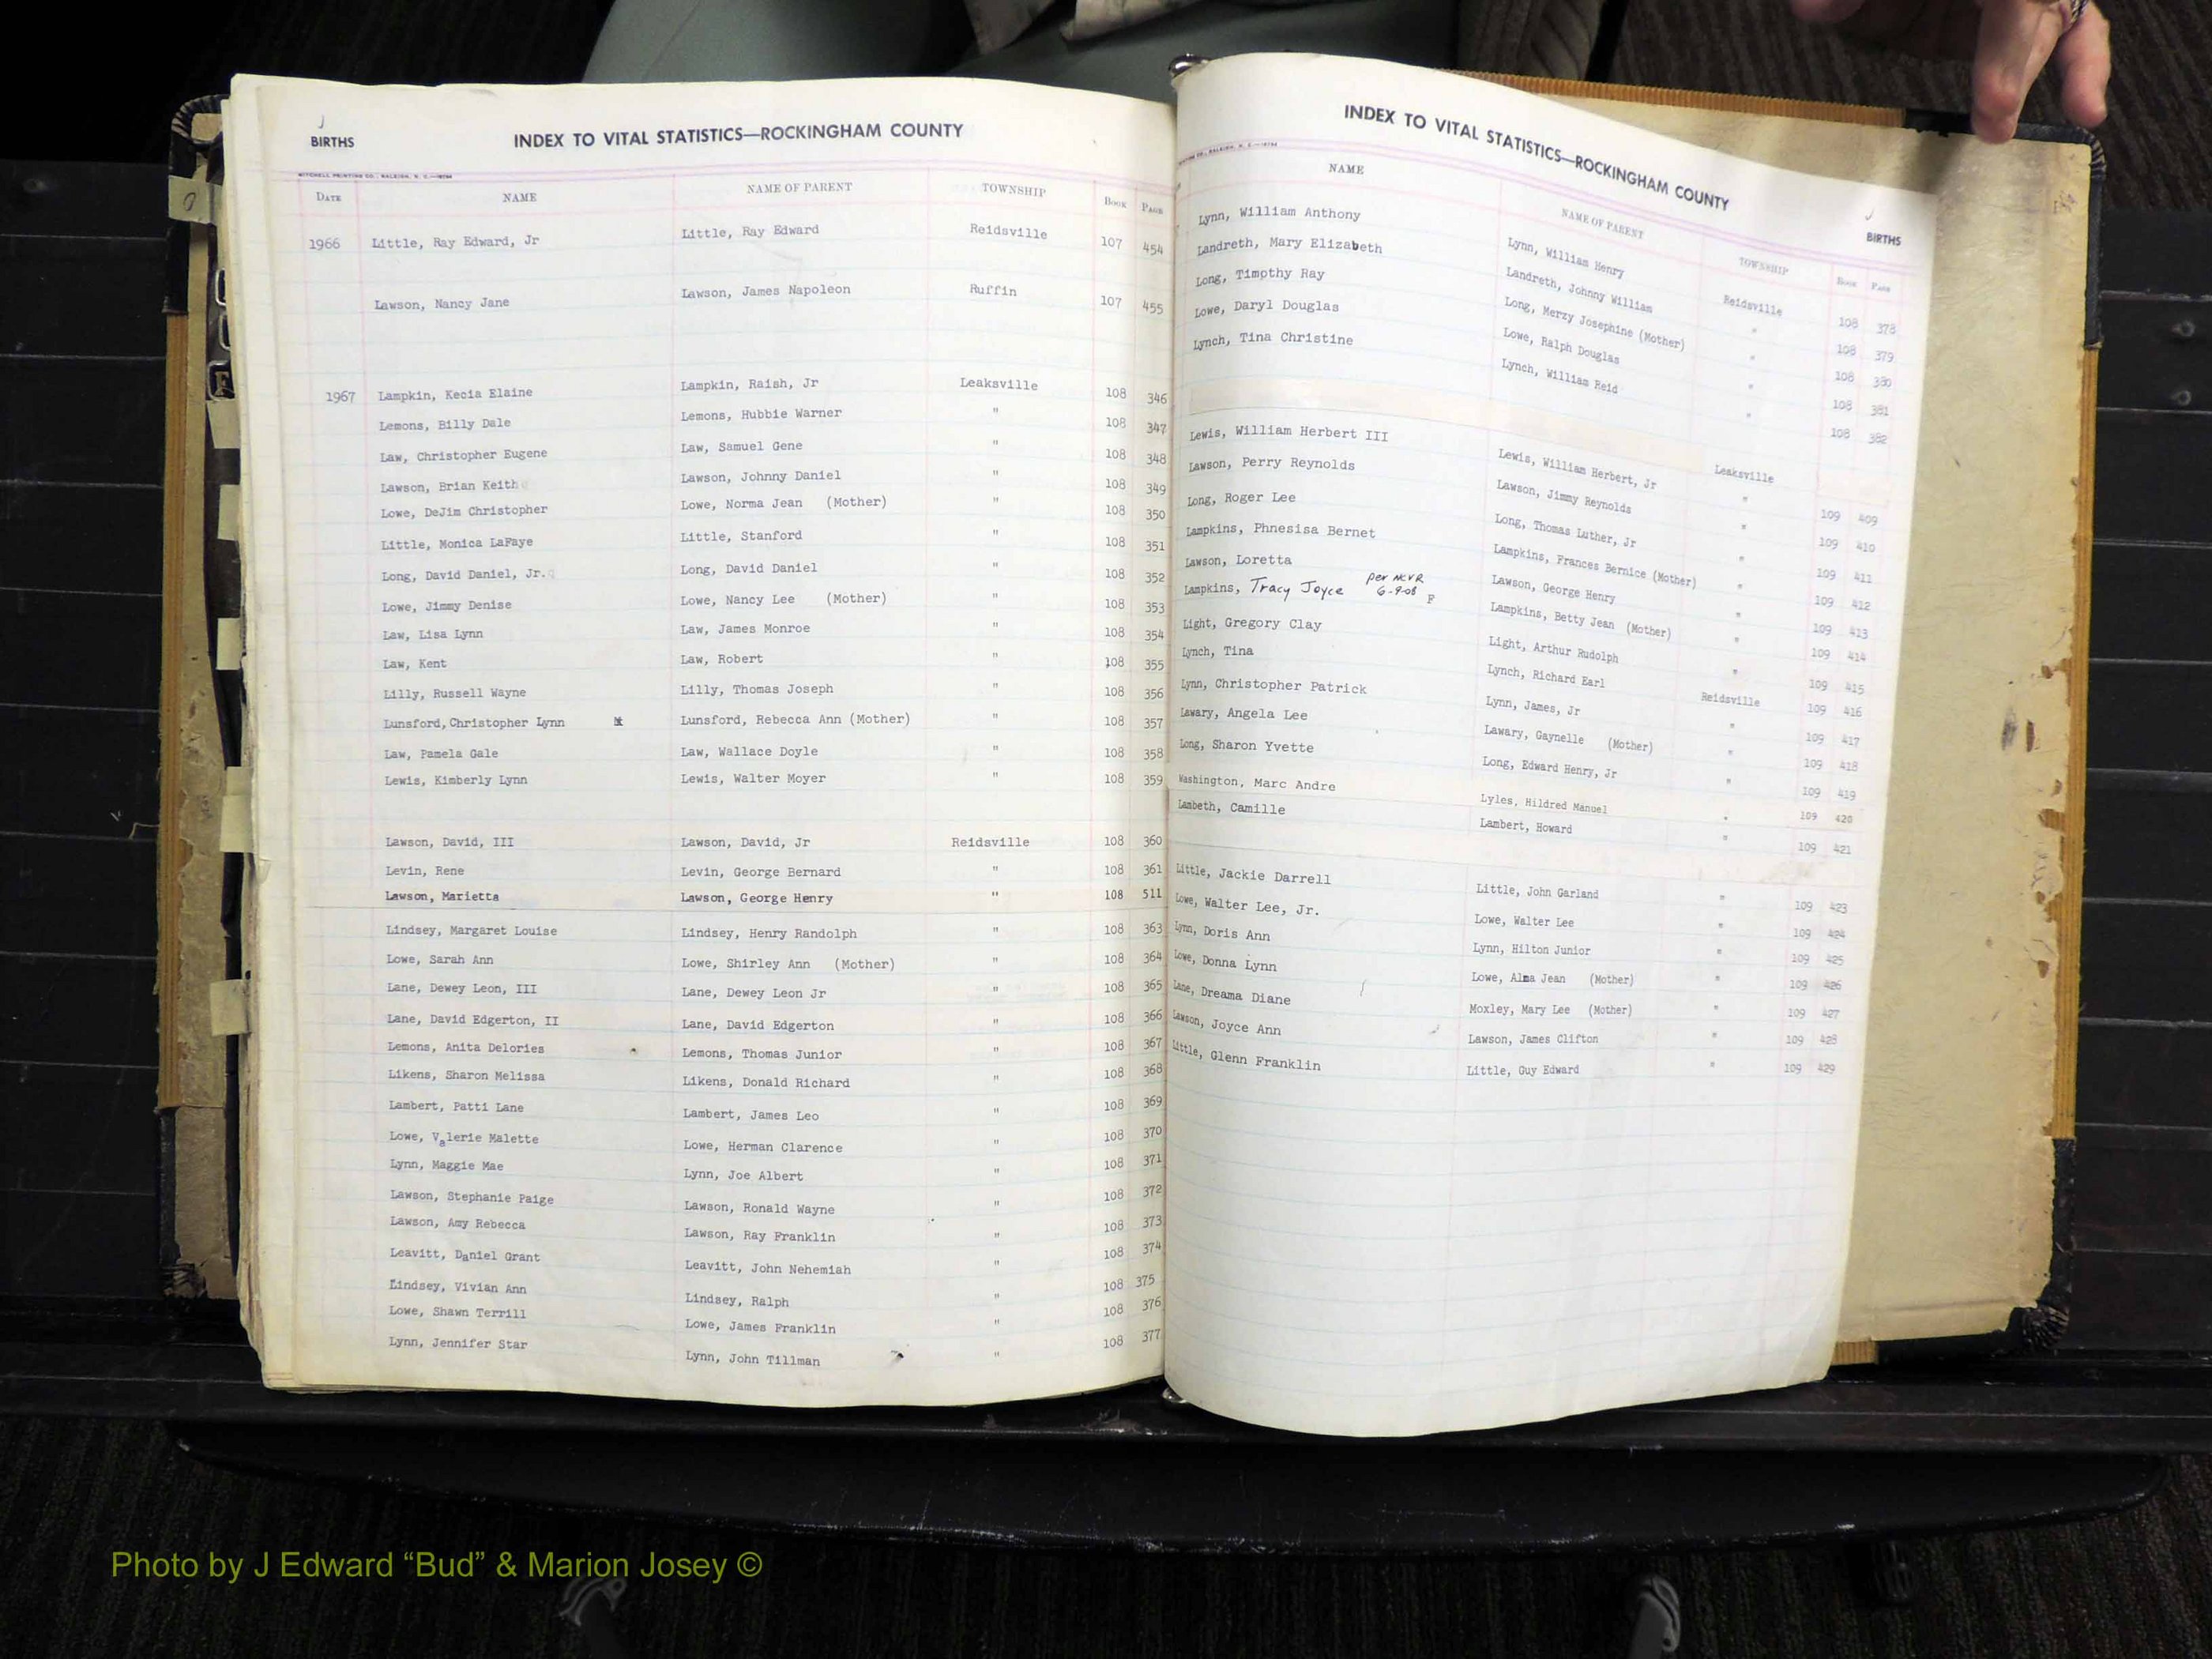 BIRTHS INDEX TO VITAL STATISTICS—ROCKINGHAM COUNTY
MITCHELL PRINTING CO., RALEIGH, N. C.
DATE NAME NAME OF PARENT TOWNSHIP BOOK PAGE
1966 Little, Ray Edward, Jr Little, Ray Edward Reidsville 107 454
Lawson, Nancy Jane Lawson, James Napoleon Ruffin 107 455
1967 Lampkin, Kecia Elaine Lampkin, Raish, Jr Leaksville 108 346
Lemons, Billy Dale Lemons, Hubbie Warner " 108 347
Law, Christopher Eugene Law, Samuel Gene " 108 348
Lawson, Brian Keith Lawson, Johnny Daniel " 108 349
Lowe, DeJim Christopher Lowe, Norma Jean (Mother) " 108 350
Little, Monica LaFaye Little, Stanford " 108 351
Long, David Daniel, Jr. Long, David Daniel " 108 352
Lowe, Jimmy Denise Lowe, Nancy Lee (Mother) " 108 353
Law, Lisa Lynn Law, James Monroe " 108 354
Law, Kent Law, Robert " 108 355
Lilly, Russell Wayne Lilly, Thomas Joseph " 108 356
Lunsford, Christopher Lynn Lunsford, Rebecca Ann (Mother) " 108 357
Law, Pamela Gale Law, Wallace Doyle " 108 358
Lewis, Kimberly Lynn Lewis, Walter Moyer " 108 359
Lawson, David, III Lawson, David, Jr Reidsville 108 360
Levin, Rene Levin, George Bernard " 108 361
Lawson, Marietta Lawson, George Henry " 108 511
Lindsey, Margaret Louise Lindsey, Henry Randolph " 108 363
Lowe, Sarah Ann Lowe, Shirley Ann (Mother) " 108 364
Lane, Dewey Leon, III Lane, Dewey Leon Jr " 108 365
Lane, David Edgerton, II Lane, David Edgerton " 108 366
Lemons, Anita Delories Lemons, Thomas Junior " 108 367
Likens, Sharon Melissa Likens, Donald Richard " 108 368
Lambert, Patti Lane Lambert, James Leo " 108 369
Lowe, Valerie Malette Lowe, Herman Clarence " 108 370
Lynn, Maggie Mae Lynn, Joe Albert " 108 371
Lawson, Stephanie Paige Lawson, Ronald Wayne " 108 372
Lawson, Amy Rebecca Lawson, Ray Franklin " 108 373
Leavitt, Daniel Grant Leavitt, John Nehemiah " 108 374
Lindsey, Vivian Ann Lindsey, Ralph " 108 375
Lowe, Shawn Terrill Lowe, James Franklin " 108 376
Lynn, Jennifer Star Lynn, John Tillman " 108 377
INDEX TO VITAL STATISTICS—ROCKINGHAM COUNTY BIRTHS
NAME NAME OF PARENT TOWNSHIP BOOK PAGE
Lynn, William Anthony Lynn, William Henry Reidsville 108 378
Landreth, Mary Elizabeth Landreth, Johnny William " 108 379
Long, Timpthy Ray Long, Merzy Josephine (Mother) " 108 380
Lowe, Daryl Douglas Lowe, Ralph Douglas " 108 381
Lynch, Tina Christine Lynch, William Reid " 108 382
Lewis, William Herbert III Lewis, William Herbert, Jr Leaksville 109 409
Lawson, Perry Reynolds Lawson, Jimmy Reynolds " 109 410
Long, Roger Lee Long, Thomas Luther, Jr " 109 411
Lampkins, Phnesisa Bernet Lampkins, Frances Bernice (Mother) " 109 412
Lawson, Loretta Lawson, George Henry " 109 413
Lampkins, Tracy Joyce per NCVR 6-9-08 F Lampkins, Betty Jean (Mother) " 109 414
Light, Gregory Clay Light, Arthur Rudolph " 109 415
Lynch, Tina Lynch, Richard Earl " 109 416
Lynn, Christopher Patrick Lynn, James, Jr Reidsville 109 417
Lawary, Angela Lee Lawary, Gaynelle (Mother) " 109 418
Long, Sharon Yvette Long, Edward Henry, Jr " 109 419
Washington, Marc Andre Lyles, Hildred Manuel " 109 420
Lambeth, Camille Lambert, Howard " 109 421
Little, Jackie Darrell Little, John Garland " 109 423
Lowe, Walter Lee, Jr. Lowe, Walter Lee " 109 424
Lynn, Doris Ann Lynn, Hilton Junior " 109 425
Lowe, Donna Lynn Lowe, Alma Jean (Mother) " 109 426
Lane, Dreama Diane Moxley, Mary Lee (Mother) " 109 427
Lawson, Joyce Ann Lawson, James Clifton " 109 428
Little, Glenn Franklin Little, Guy Edward " 109 429
Photo by J Edward “Bud” & Marion Josey ©